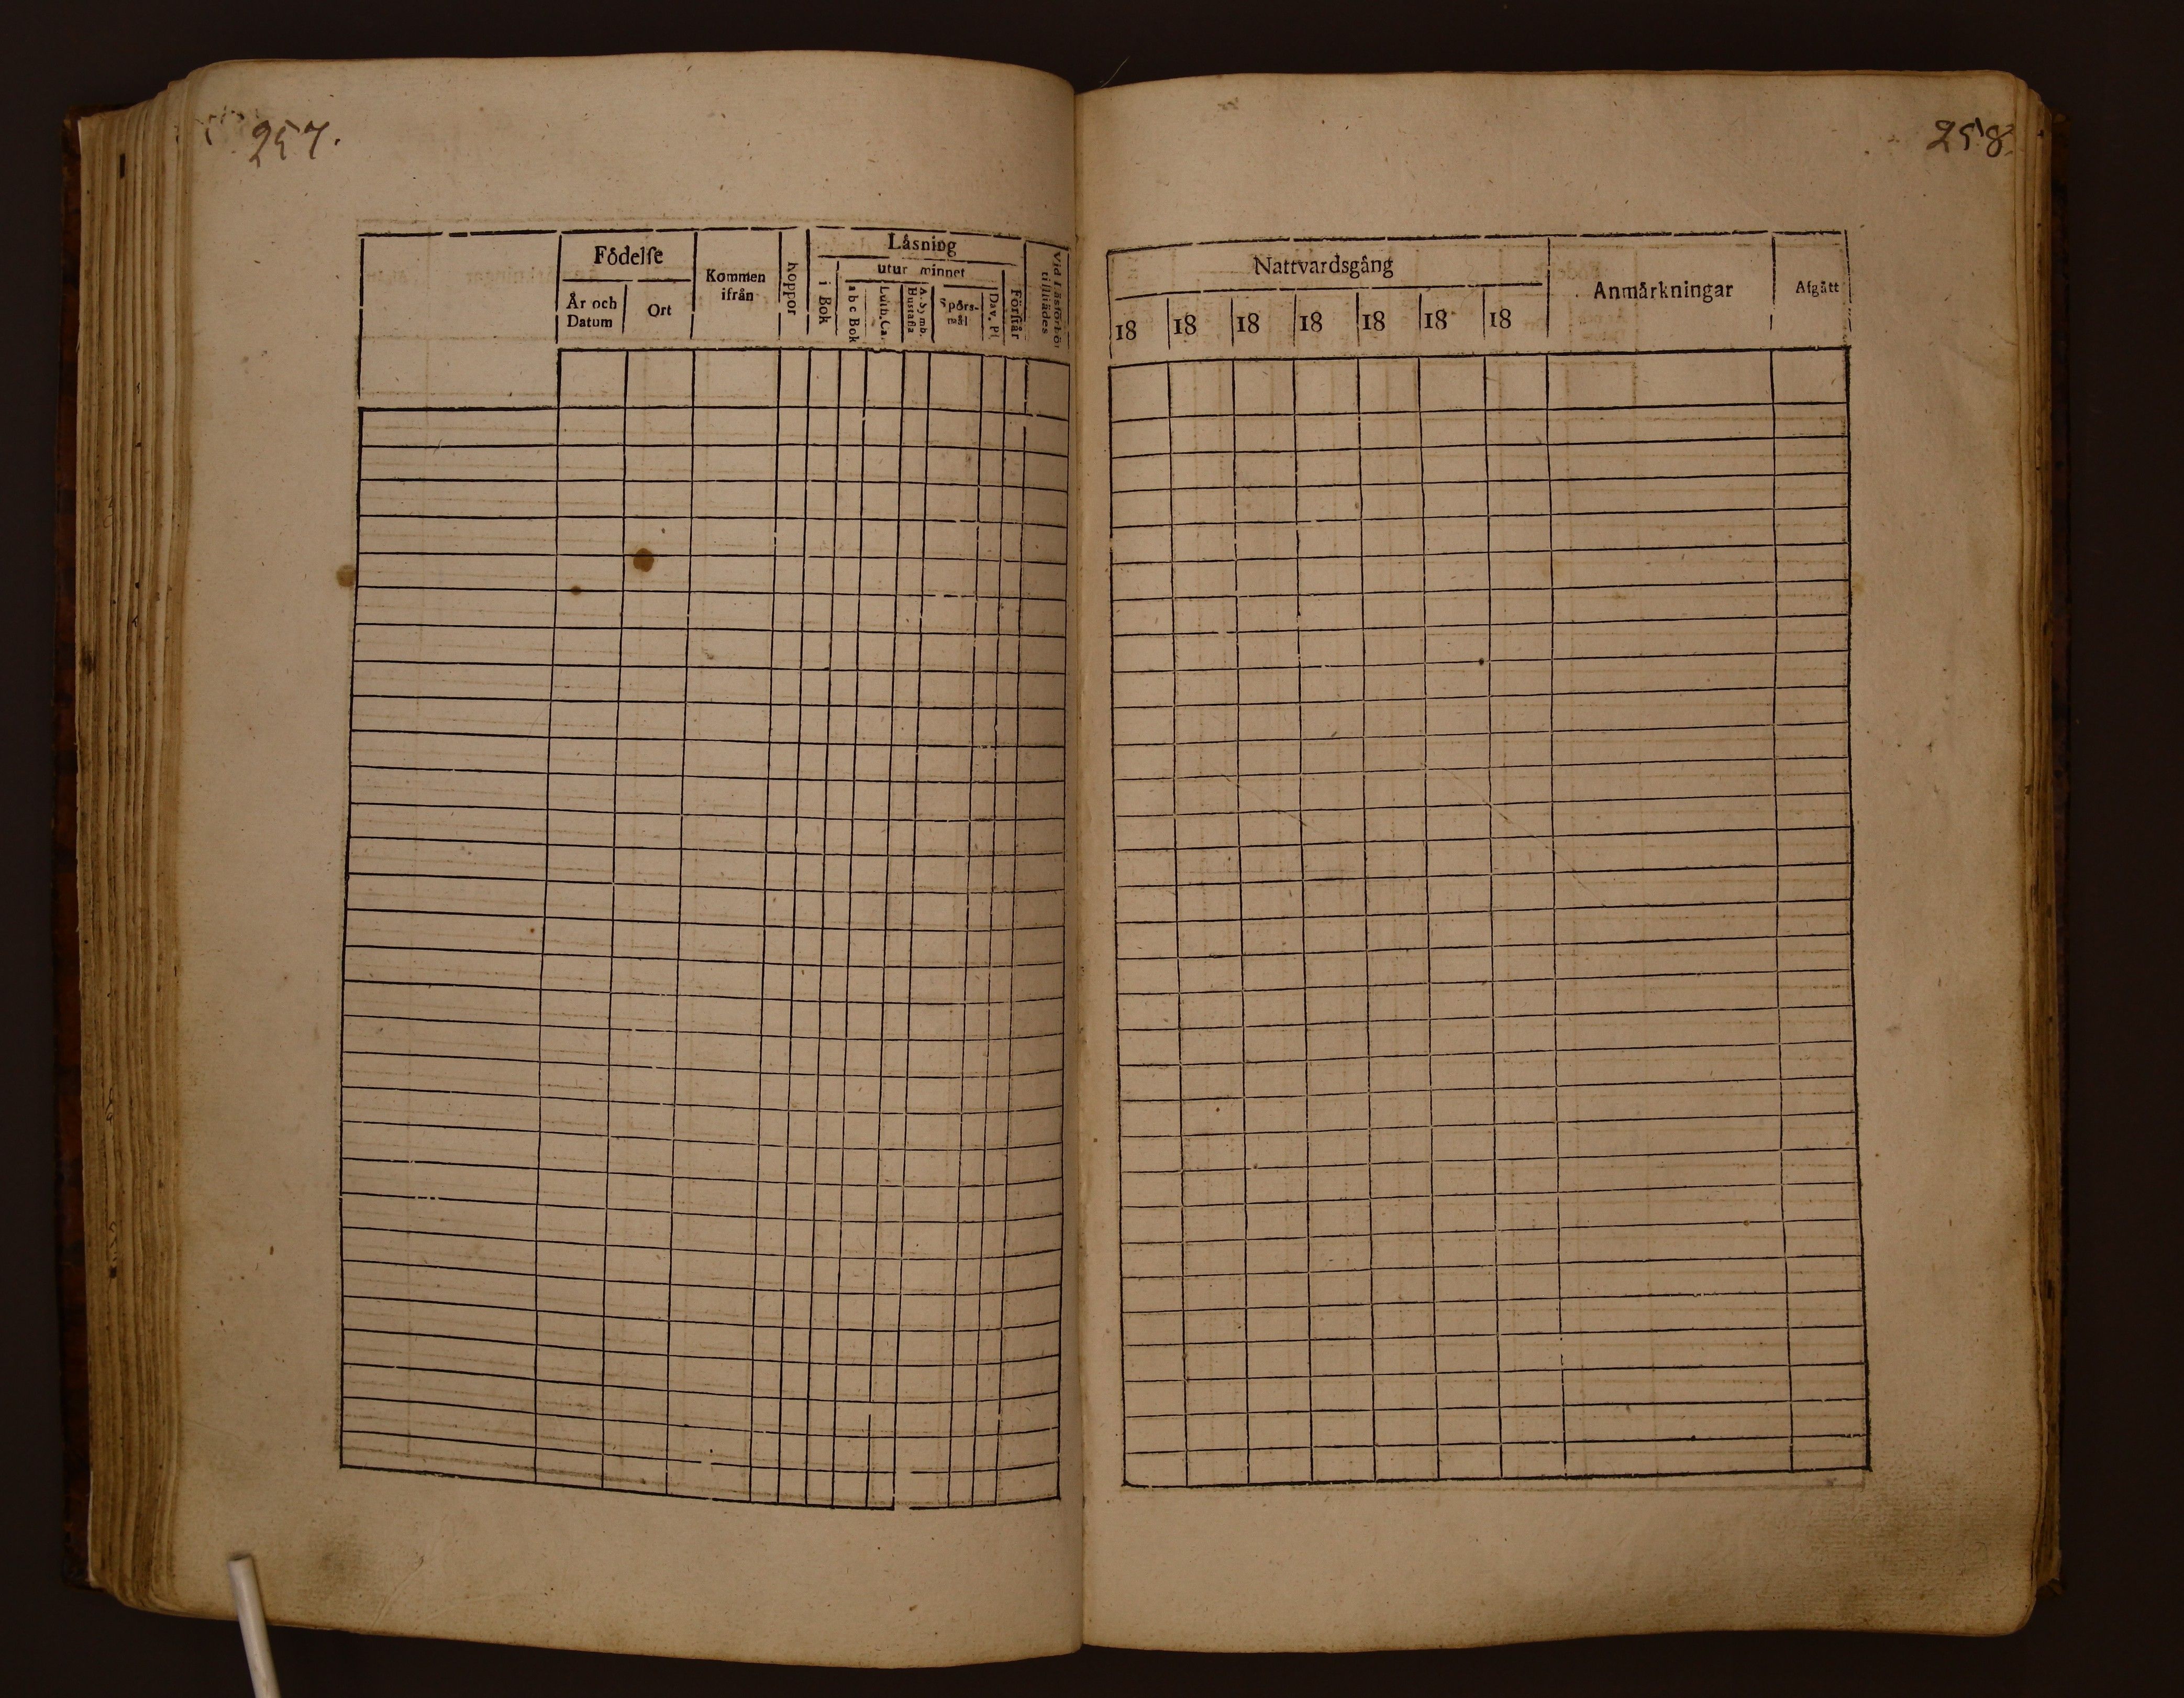 257.
Födelse
År och Datum
Ort
Kommen ifrån
Koppor
Läsning
i Bok
utur minnet
a b c Bok
Luth. Ca.
A. Symb.
Hustafla
Spörsmål
Dav. Ps
Förstår
Vid Läsförhör
tillstädes
258.
Nattvardsgång
18 18 18 18 18 18 18
Anmärkningar
Afgått